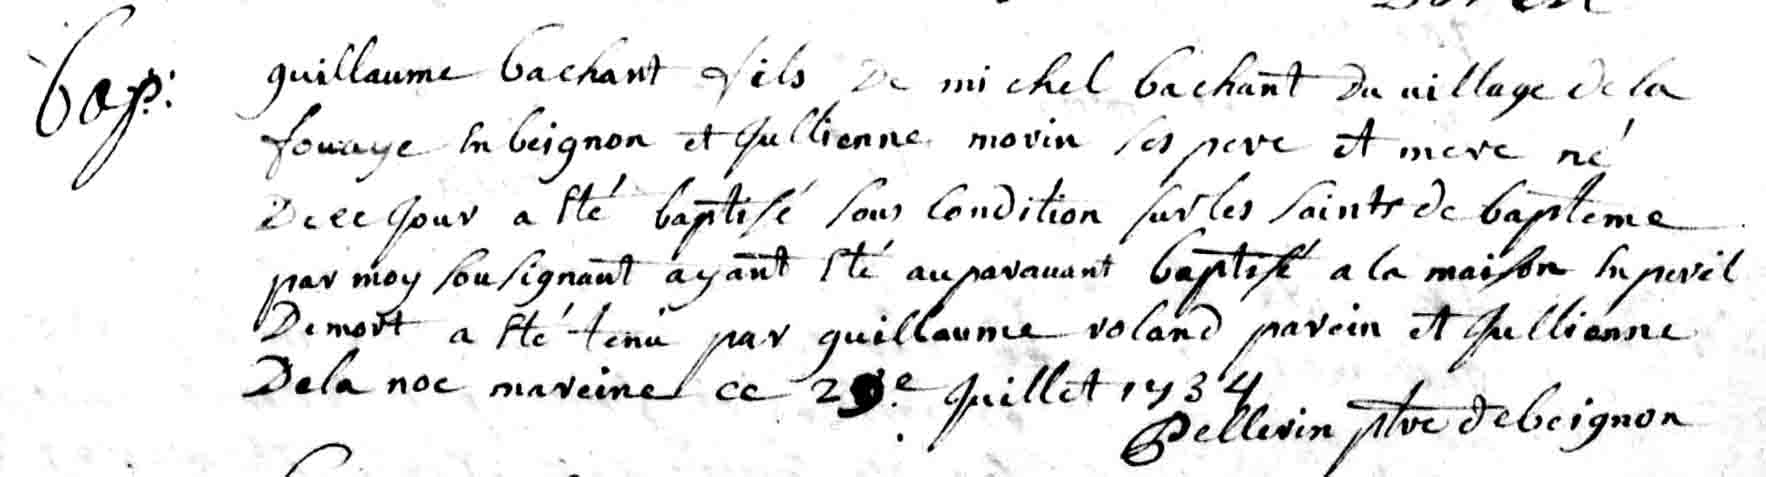 bap:
guillaume bachant fils de michel bachant du village de la
fouaye en beignon et jullienne morin ses pere et mere né
de ce jour a été baptisé sous condition sur les saints de bapteme
par moy sousignant ayant été auparavant baptisé a la maison en peril
de mort a été tenu par guillaume roland parein et jullienne
de la noe mareine ce 29e juillet 1734
Pellerin ptre de beignon